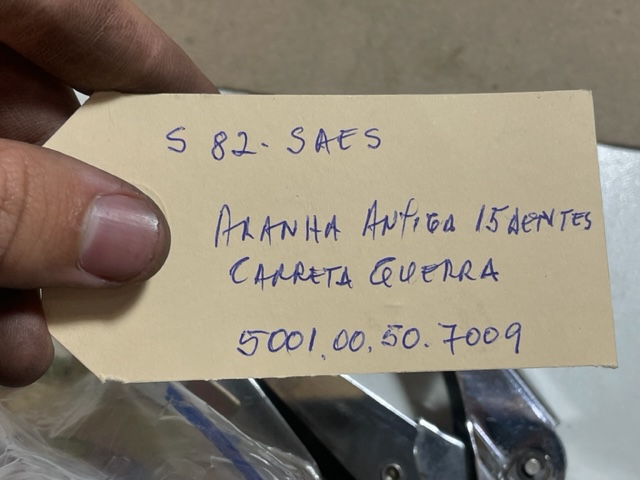 S 82. SAES
ARANHA ANTIGA 15 DENTES
CARRETA GUERRA
5001.00.50.7009